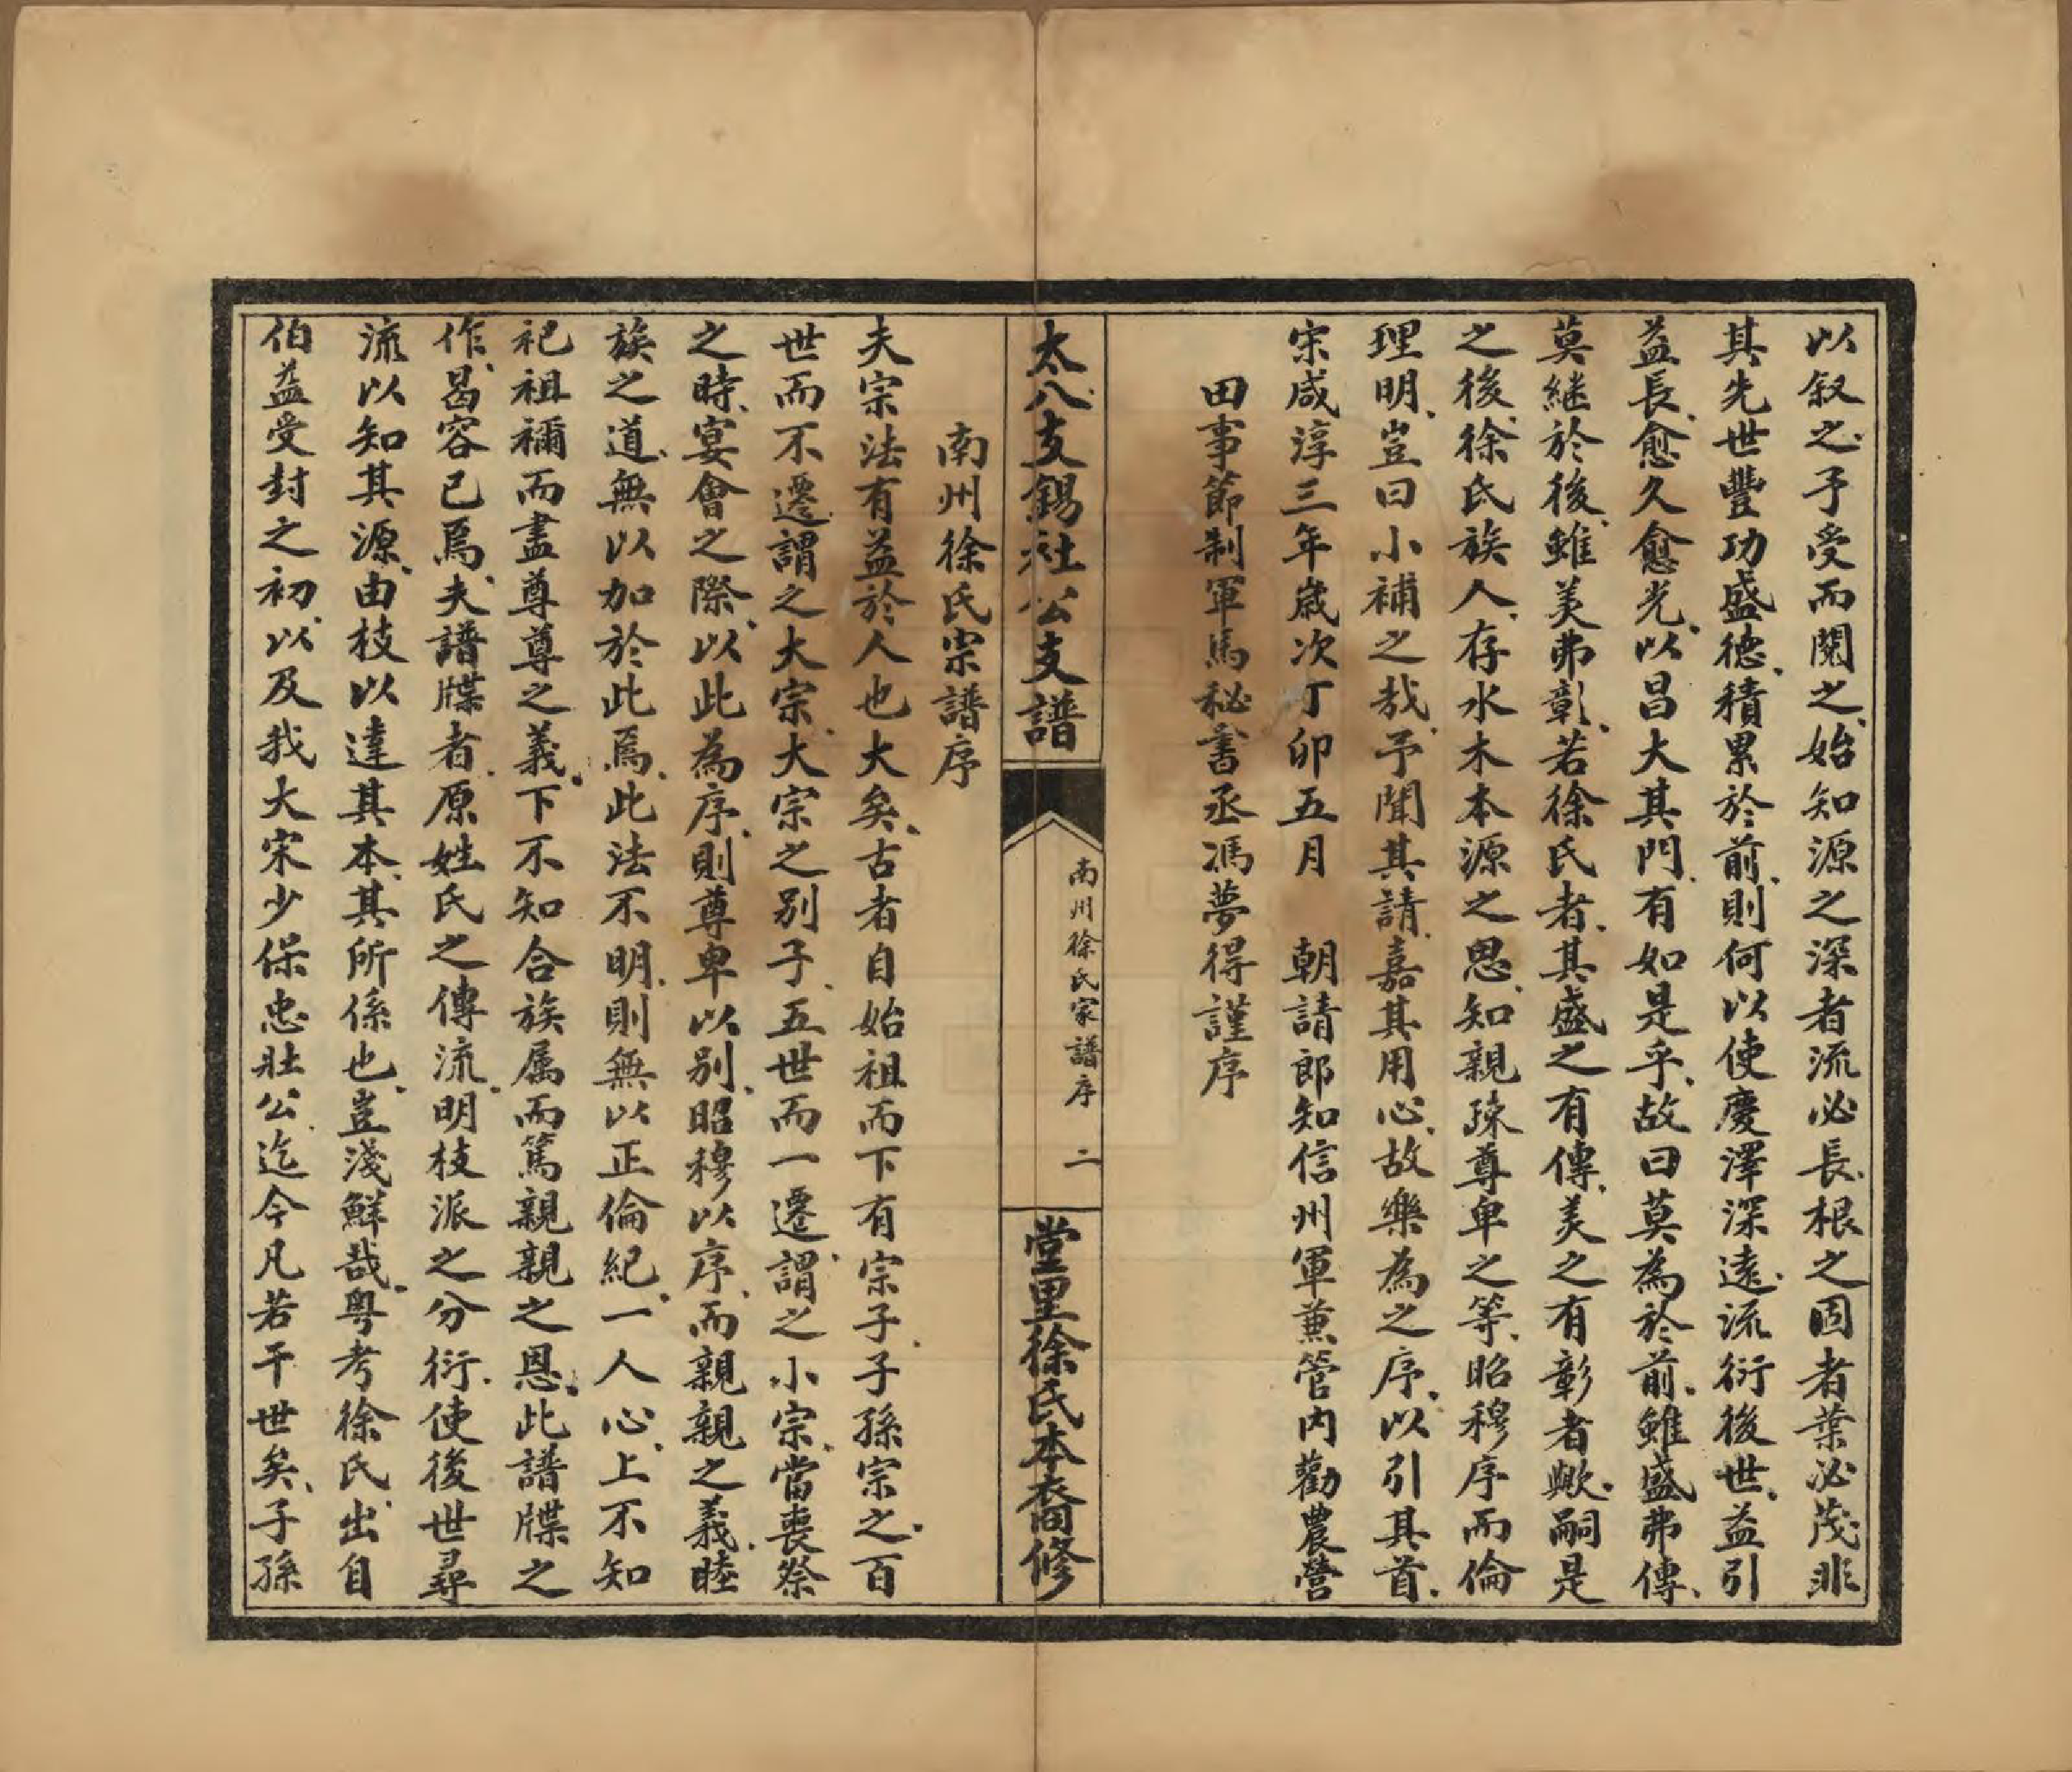 以叙之予受而閱之始知源之深者流必長根之固者葉必茂非
其先世豐功盛德積累於前則何以使慶澤深遠流衍後世益引
益長愈久愈光以昌大其門有如是乎故曰莫為於前雖盛弗傳
莫継於後雖美弗彰若徐氏者其盛之有傳美之有彰者歟嗣是
之後徐氏族人存水木本源之思知親疎尊卑之等昭穆序而倫
理明豈曰小補之哉予聞其請嘉其用心故樂為之序以引其首
宋咸淳三年歲次丁卯五月　朝請郎知信州軍蕪管內勸農營
田事節制軍馬秘書丞馮夢得謹序
太八支錫社公支譜
南州徐氏家譜序　二
堂里徐氏本裔修
南州徐氏宗譜序
夫宗法有益於人也大矣古者自始祖而下有宗子子孫宗之百
世而不遷謂之大宗大宗之別子五世而一遷謂之小宗當喪祭
之時宴會之際以此為序則尊卑以別昭穆以序而親親之義睦
族之道無以加於此焉此法不明則無以正倫紀一人心上不知
祀祖禰而盡尊尊之義下不知合族属而篤親親之恩此譜牒之
作曷容已焉夫譜牒者原姓氏之傳流明枝派之分衍使後世尋
流以知其源由枝以達其本其所係也豈淺鮮哉粵考徐氏出自
伯益受封之初以及我大宋少保忠壯公迄今凡若干世矣子孫